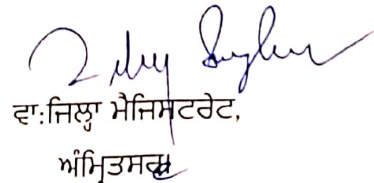 ਵਾ:ਜਿਲ੍ਹਾ ਮੈਜਿਸਟਰੇਟ,
ਅੰਮ੍ਰਿਤਸਰ